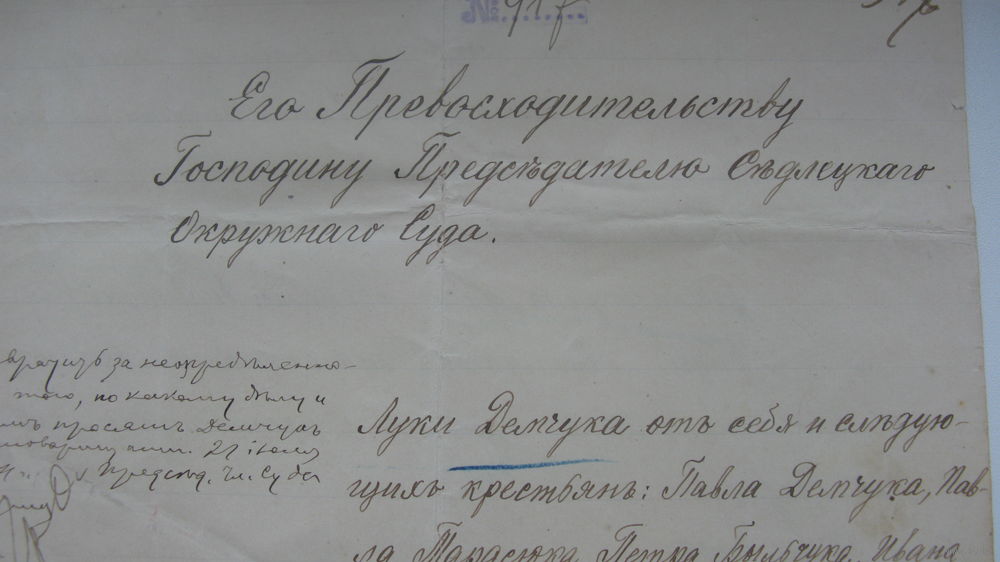 №
Его Превосходительству
Господину Предсѣдателю Сѣдлецкаго
Окружнаго Суда.
за неопредѣленно-
того, по какому дѣлу и
просятъ Демчукъ
21 іюля
Предсѣд. Суда
Луки Демчука отъ себя и слѣдую-
щихъ крестьянъ: Павла Демчука, Пав-
ла Тарасюка, Петра Быльчука, Ивана